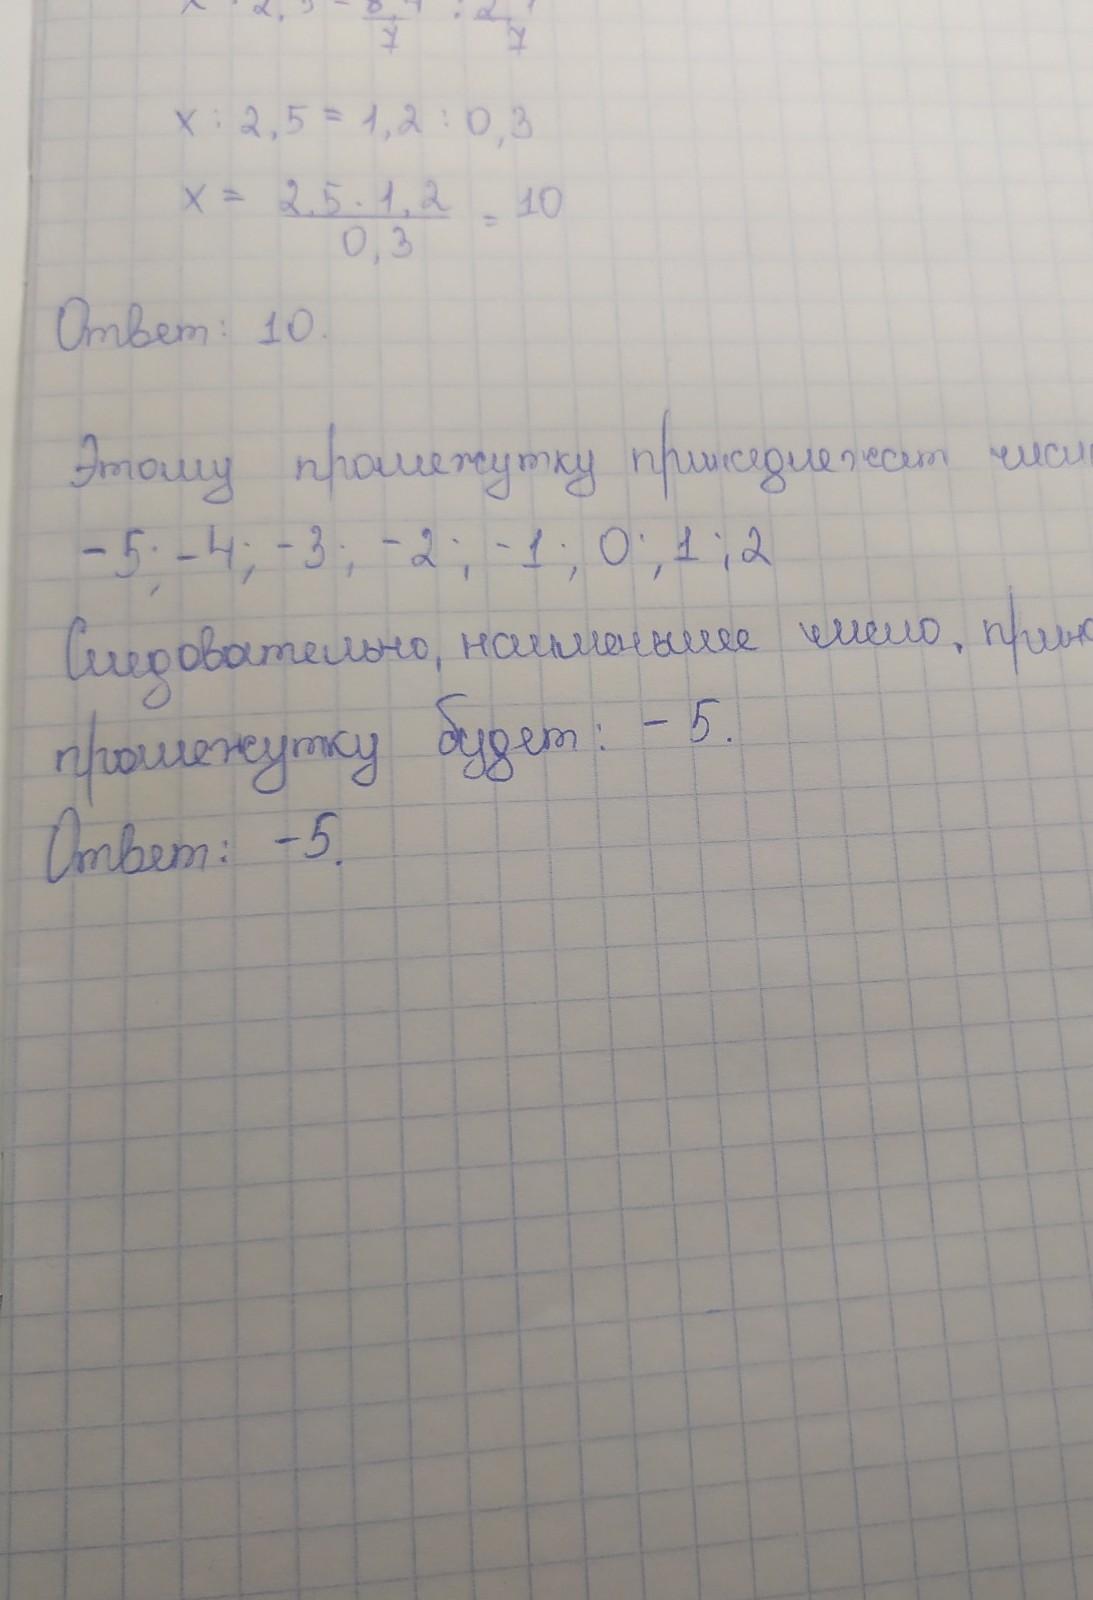 x : 2,5 = 8,4/7 : 2,1/7
x : 2,5 = 1,2 : 0,3
x = 2,5 · 1,2 / 0,3 = 10
Ответ: 10.
Этому промежутку принадлежат
-5; -4; -3; -2; -1; 0; 1; 2
Следовательно, наименьшее число,
промежутку будет: -5.
Ответ: -5.